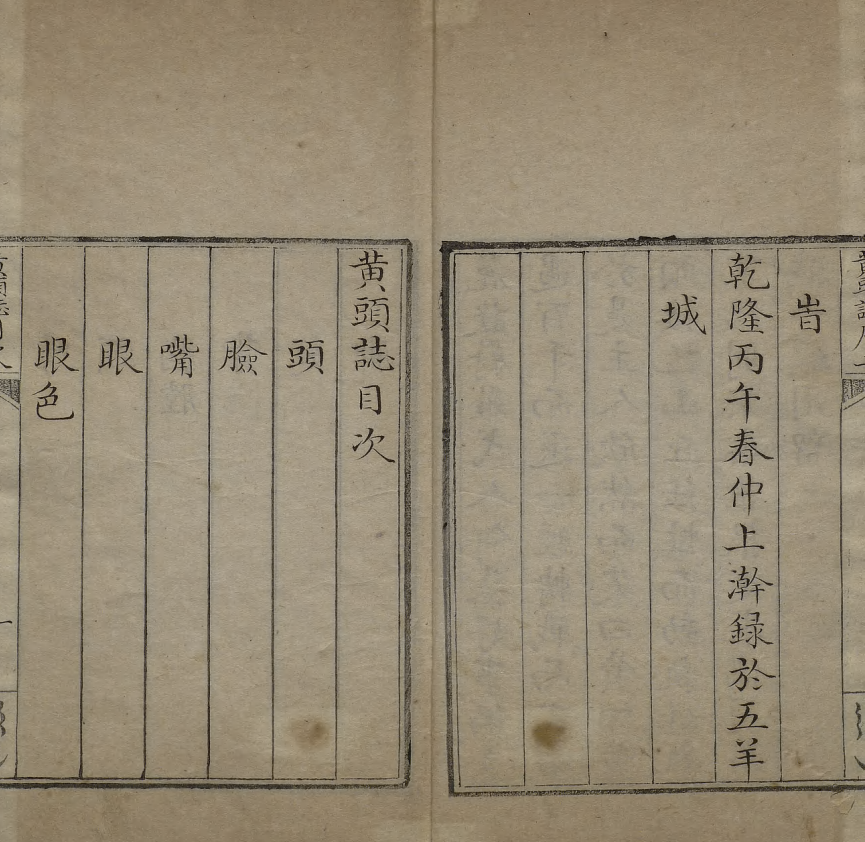 旹
乾隆丙午春仲上澣録於五羊
城
黄頭誌目次
頭
臉
嘴
眼
眼色